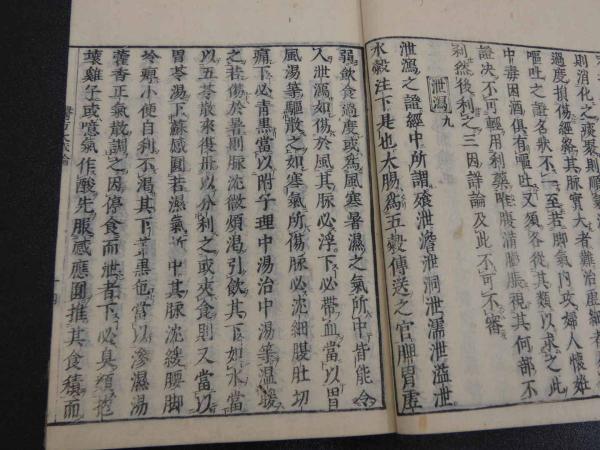 則消化之痰聚則順氣
過度損傷經絡其脉實大者難治虛細者
嘔吐之證名狀不一至若脚氣內攻婦人懷姙
中毒因酒俱有嘔吐又須各從其類以求之此
證决不可輕用利藥惟腹滿膨脹視其何部不
利然後利之三因詳論及此不可不審
泄瀉九
泄瀉之證經中所謂飱泄溏泄洞泄濡泄溢泄
水糓注下是也大腸為五糓傳送之官脾胃虛
弱飲食過度或為風寒暑濕之氣所中皆能令
人泄瀉如傷於風其脉必浮下必帶血當以胃
風湯等驅散之如寒氣所傷脉必沉細腹肚切
痛下必青黑當以附子理中湯治中湯等溫暖
之若傷於暑則脉沈微煩渴引飲其下如水當
以五苓散來復丹以分利之或夾食則又當以
胃苓湯下蘇感圓若濕氣所中其脉沈緩腰脚
冷痺小便自利不渴其下黃黑色當以滲濕湯
藿香正氣散調之因停食而泄者下必臭類抱
壞雞子或噫氣作酸先服感應圓推其食積而